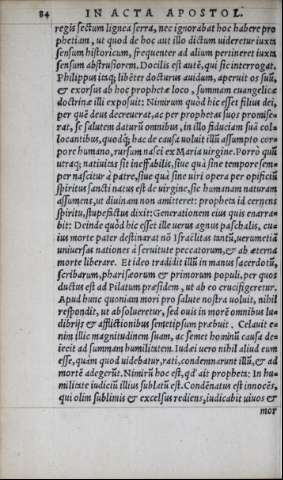 84 IN ACTA APOSTOL.
regis sectum lignea serra, nec ignorabat hoc habere pro
phetiam, ut quod de hoc aut illo dictum uideretur iuxta
sensum historicum, frequenter ad alium pertineret iuxta
sensum abstrusiorem. Docilis est autẽ, qui sic interrogat.
Philippus itaq; libẽter docturus auidum, aperuit os suũ,
& exorsus ab hoc prophetæ loco, summam euangelicæ
doctrinæ illi exposuit: Nimirum quòd hic esset filius dei,
per quẽ deus decreuerat, ac per prophetas suos promise-
rat, se salutem daturũ omnibus, in illo fiduciam suã col-
locantibus, quodq́; hac de causa uoluit illũ assumpto cor-
pore humano, rursum nasci ex Maria uirgine. Porrò quũ
utraq; natiuitas sit ineffabilis, siue quà sine tempore sem-
per nascitur à patre, siue quà sine uiri opera per opificiũ
spiritus sancti natus est de uirgine, sic humanam naturam
assumens, ut diuinam non amitteret: propheta id cernens
spiritu, stupefactus dixit: Generationem eius quis enarra-
bit: Deinde quòd hic esset ille uerus agnus paschalis, cu-
ius morte pater destinarat nõ Israëlitas tantũ, uerumetiã
uniuersas nationes à seruitute peccatorum, & ab æterna
morte liberare. Et ideo tradidit illũ in manus sacerdotũ,
scribarum, pharisæorum & primorum populi, per quos
ductus est ad Pilatum præsidem, ut ab eo crucifigeretur.
Apud hunc quoniam mori pro salute nostra uoluit, nihil
respondit, ut absolueretur, sed ouis in morẽ omnibus lu-
dibrijs & afflictionibus semetipsum præbuit. Celauit e-
nim illic magnitudinem suam, ac semet hominũ causa de-
iecit ad summam humilitatem. Iudæi uero nihil aliud eum
esse, quàm quod uidebatur, rati, condemnarunt illũ, & ad
mortẽ adegerũt. Nimirũ hoc est, qđ ait propheta: In hu-
militate iudiciũ illius sublatũ est. Condẽnatus est innocẽs,
qui olim sublimis & excelsus rediens, iudicabit uiuos &
mor